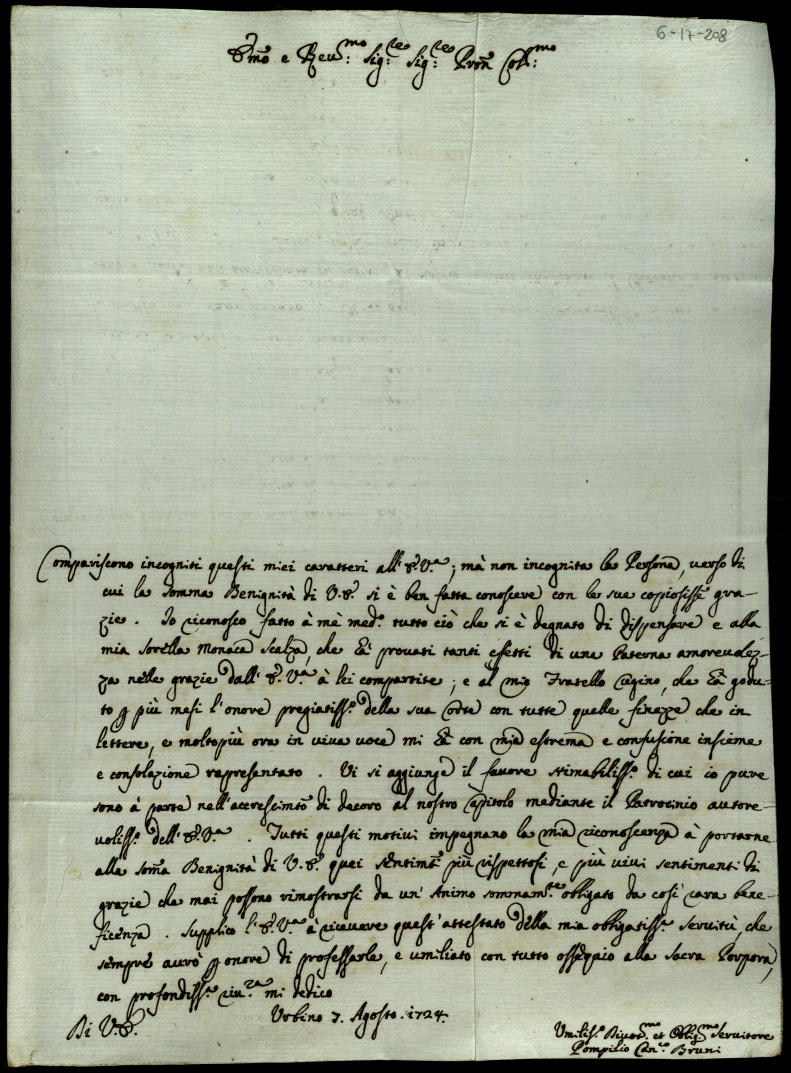 6-17-208
Em̃o e Reu:mo Sig:re Sig:re Pron̄ Coll:mo
Compariscono incogniti questi miei caratteri all'E.V.a; mà non incognita la Persona, verso di
cui la somma Benignità di V.E. si è ben fatta conoscere con le sue copiosissẽ gra-
zie. Io riconosco fatto à mè med.o tutto ciò che si è degnato di dispensare e alla
mia Sorella Monaca Scalza, che hà provati tanti effetti di una Paterna amorevolez-
za nelle grazie dall'E.V.a à lei compartite; e al mio Fratello che hà godu-
to p più mesi l'onore pregiatiss.o della sua Corte con tutte quelle finezze che in
lettere, e molto più ora in viva voce mi hà con mia estrema e confusione insieme
e consolazione rapresentato. Vi si aggiunge il favore stimabiliss.o di cui io pure
sono à parte nell'accrescimto di decoro al nostro Capitolo mediante il Patrocinio autore-
voliss.o dell'E.V.a. Tutti questi motivi impegnano la mia riconoscenza à portarne
alla som̃a Benignità di V.E. quei sentimti più rispettosi, e più vivi sentimenti di
grazie che mai possono rimostrarsi da un'Animo sommam.te obligato da così rara bene-
ficenza. Supplico l'E.V.a à ricevere quest'attestato della mia obligatiss.a servitù, che
sempre avrò p onore di professarle, e umiliato con tutto ossequio alla Sacra Porpora,
con profondiss.a riu.za mi dedico
Di V.E.
Urbino 7. Agosto. 1724.
Umiliss.o Divot.mo et Oblig.mo Servitore
Pompilio Can.co Bruni